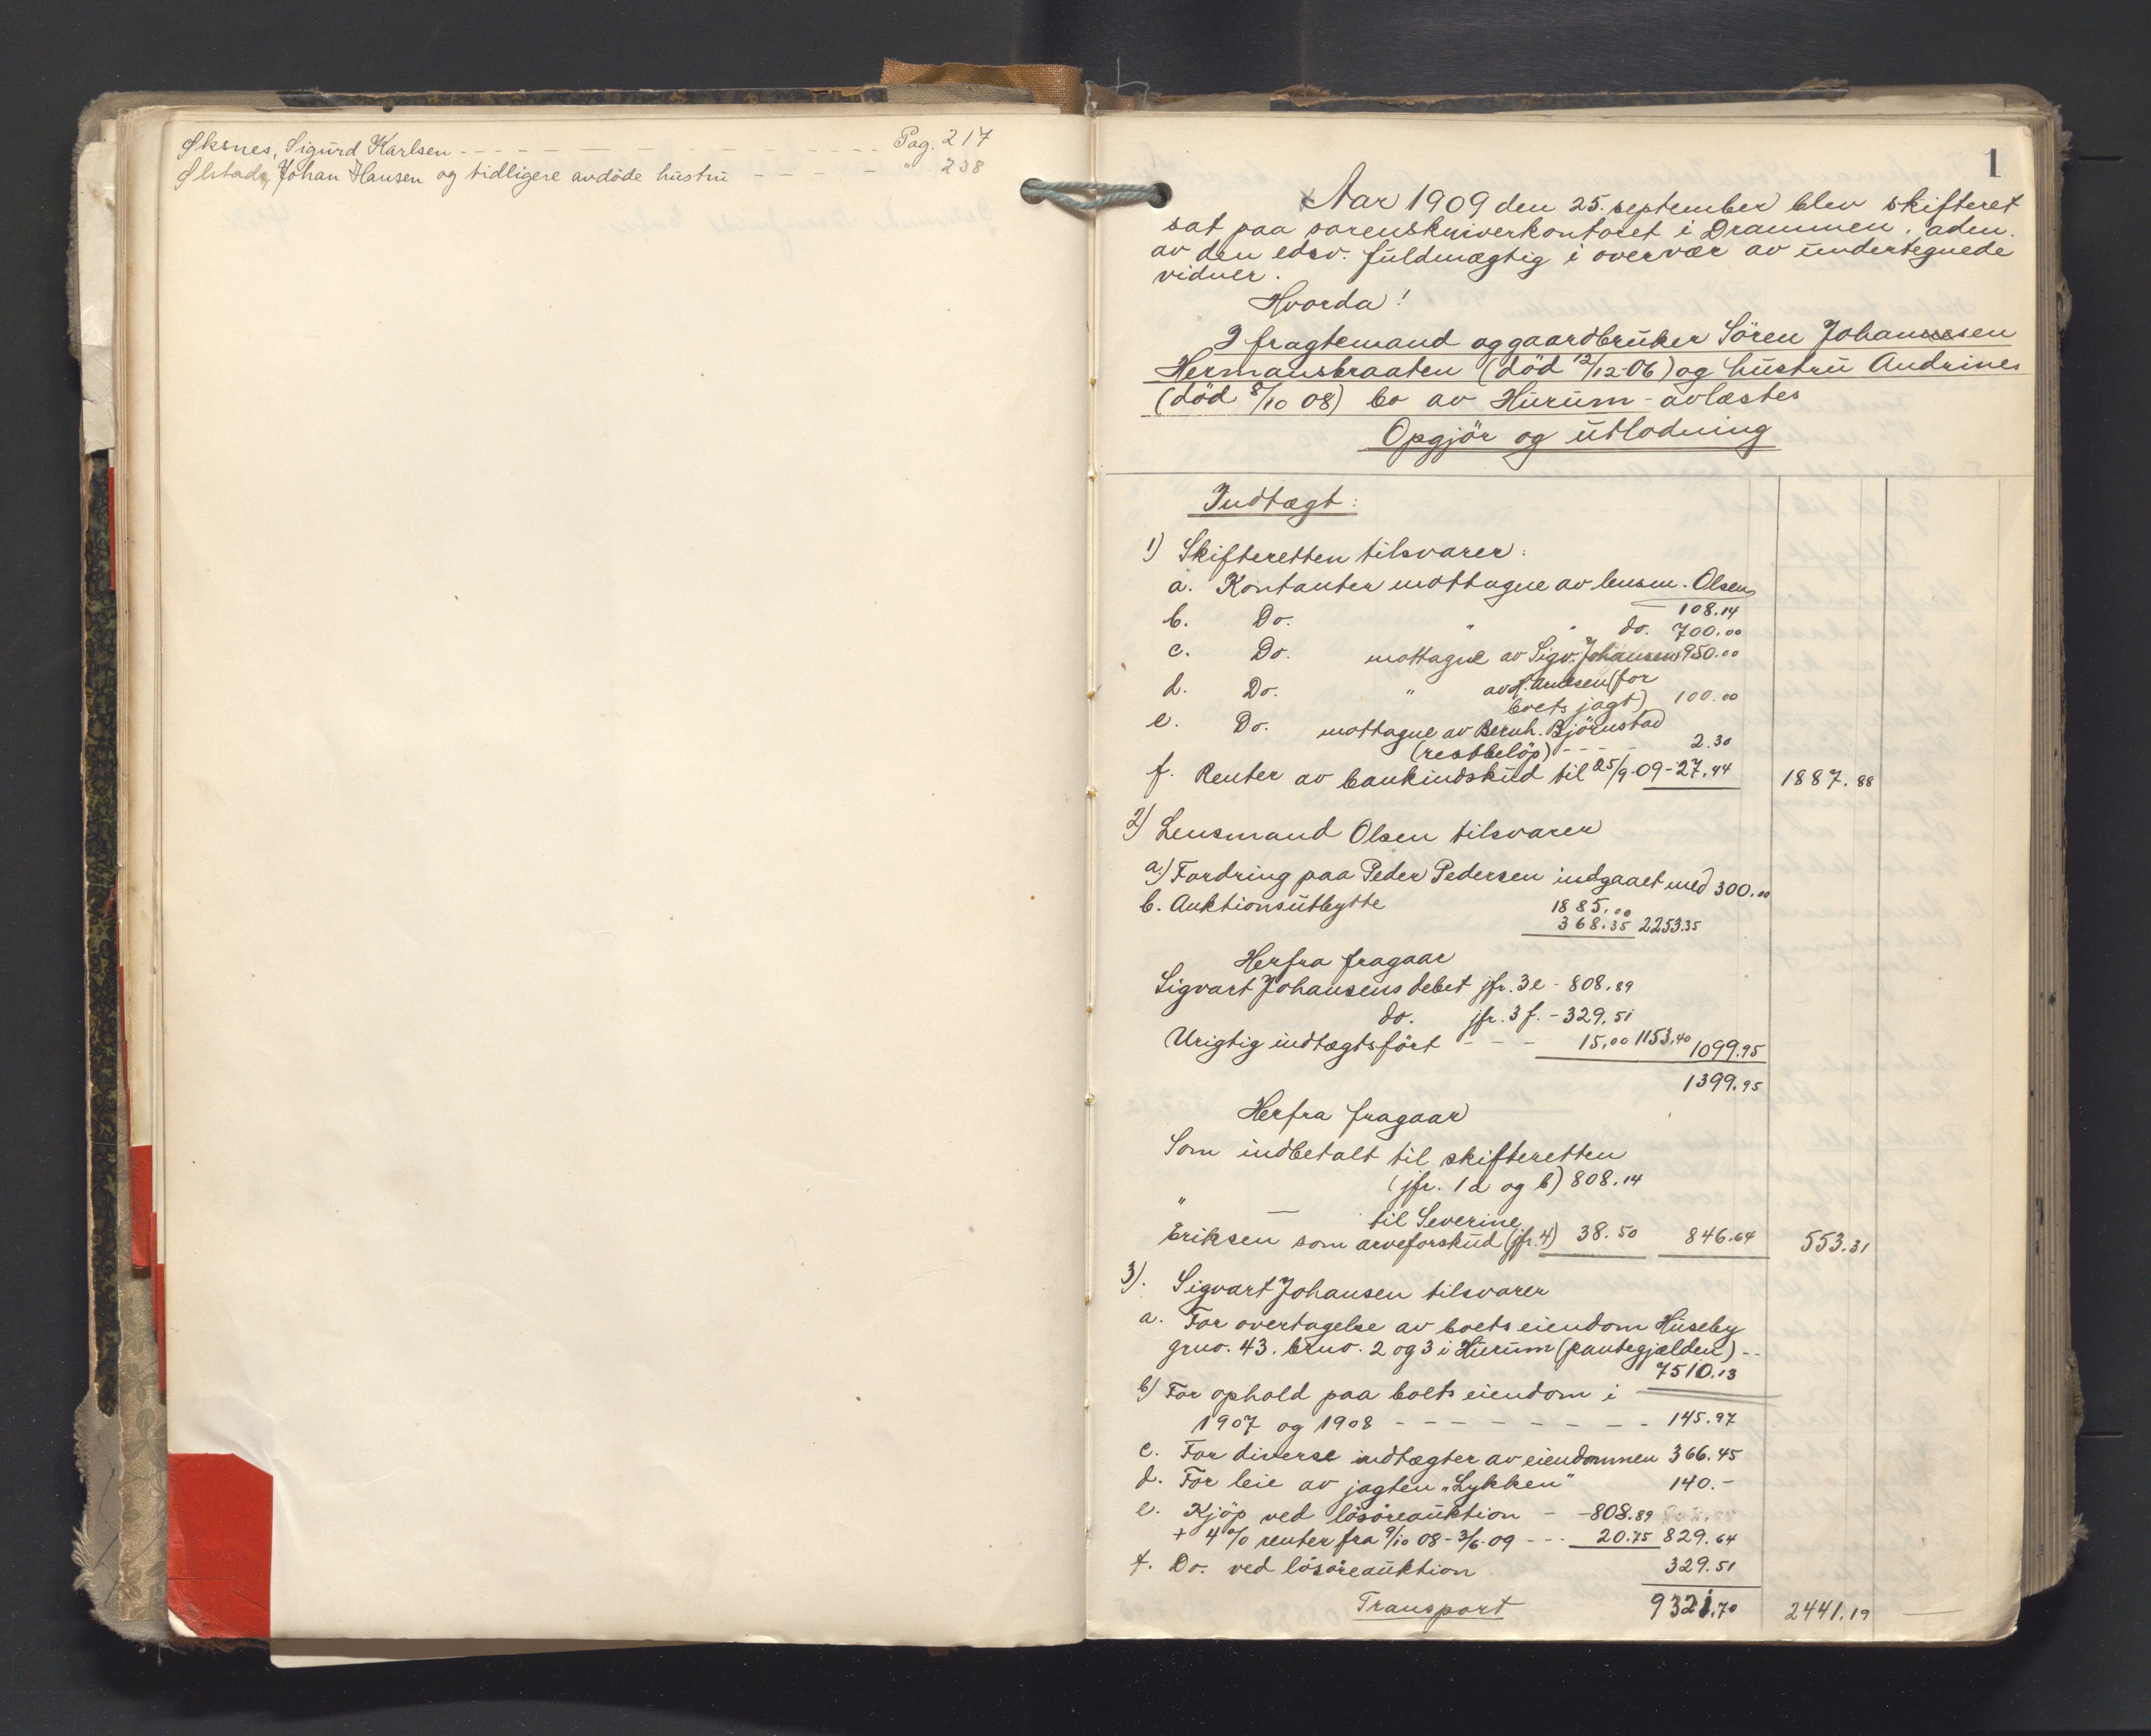 Øksnes, Sigurd Karlsen - - - - - - - - - - - Pag. 217
Ølstad, Johan Hansen og tidligere avdöde hustru - - - - - " 238
1
Aar 1909 den 25. september blev skifteret
sat paa sorenskriverkontoret i Drammen, adm.
av den edsv. fuldmægtig i overvær av undertegnede
vidner.
Hvorda!
I fragtemand og gaardbruker Sören Johannesen
Hermansbraaten (död 12/12-06) og hustru Andrines
(död 8/10 08) bo av Hurum - avlæstes
Opgjör og utlodning
Indtægt:
1) Skifteretten tilsvarer:
a. Kontanter mottagne av lensm. Olsen
108.14
b. Do. " " do. 700.00
c. Do. mottagne av Sigv. Johansen 950.00
d. Do. " av H. Arntsen (for
boets jagt) 100.00
e. Do. mottagne av Bernh. Björnstad
(restbelöp) - - - - 2.30
f. Renter av bankindskud til 25/9-09 - 27.44 1887.88
2) Lensmand Olsen tilsvarer
a.) Fordring paa Peder Pedersen indgaaet med 300.00
b. Auktionsutbytte 1885.00
368.35 2253.35
Herfra fragaar
Sigvart Johansens debet jfr. 3e - 808.89
do. jfr. 3 f. - 329.51
Urigtig indtægtsfört - - - 15.00 1153.40 1099.95
1399.95
Herfra fragaar
Som indbetalt til skifteretten
(jfr. 1a og b) 808.14
" — til Severine
Eriksen som arveforskud (jfr. 4) 38.50 846.64 553.31
3). Sigvart Johansen tilsvarer
a. For overtagelse av boets eiendom Huseby
grno. 43. brno. 2 og 3 i Hurum (pantegjælden) --
7510.13
b) For ophold paa boets eiendom i
1907 og 1908 - - - - - - - - - 145.97
c. For diverse indtægter av eiendommen 366.45
d. For leie av jagten "Lykken" 140.-
e. Kjöp ved lösöreauktion - - 808.89
+ 4% renter fra 9/10 08 - 3/6-09 - - - 20.75 829.64
f. Do. ved lösöreauktion 329.51
Transport 9321.70 2441.19